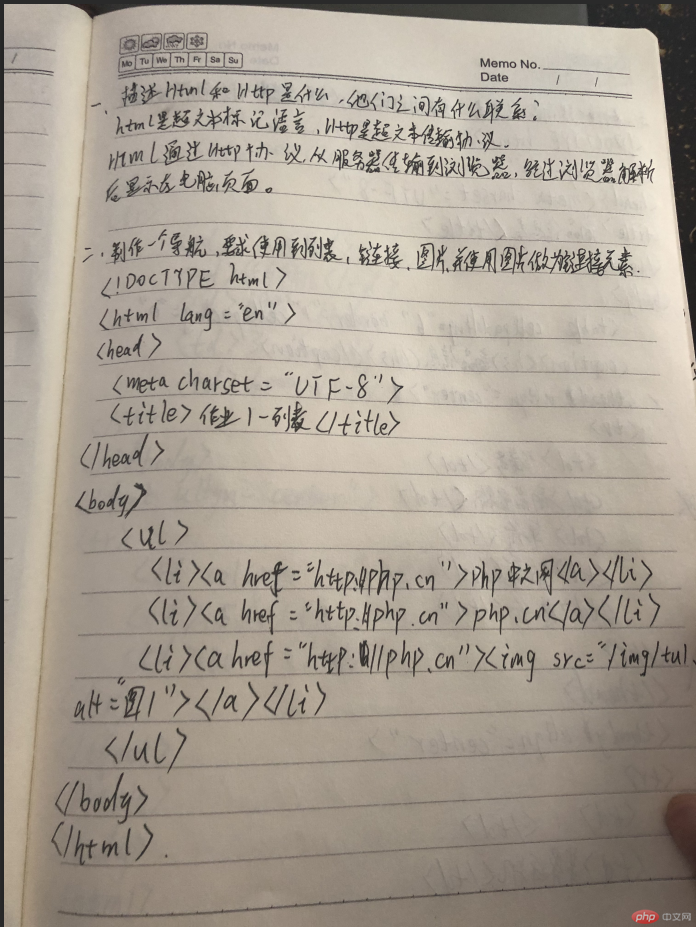 Mo Tu We Th Fr Sa Su
Memo No.
Date / /
一、描述Html和Http是什么,他们之间有什么联系?
html是超文本标记语言,Http是超文本传输协议。
Html通过Http协议,从服务器传输到浏览器,经过浏览器解析
后显示在电脑页面。
二、制作一个导航,要求使用到列表,链接,图片,并使用图片做为链接元素.
<!DOCTYPE html>
<html lang="en">
<head>
<meta charset="UTF-8">
<title>作业1-列表</title>
</head>
<body>
<ul>
<li><a href="http://php.cn">php中文网</a></li>
<li><a href="http://php.cn">php.cn</a></li>
<li><a href="http://php.cn"><img src="/img/tu1.
alt="图1"></a></li>
</ul>
</body>
</html>.
php 中文网